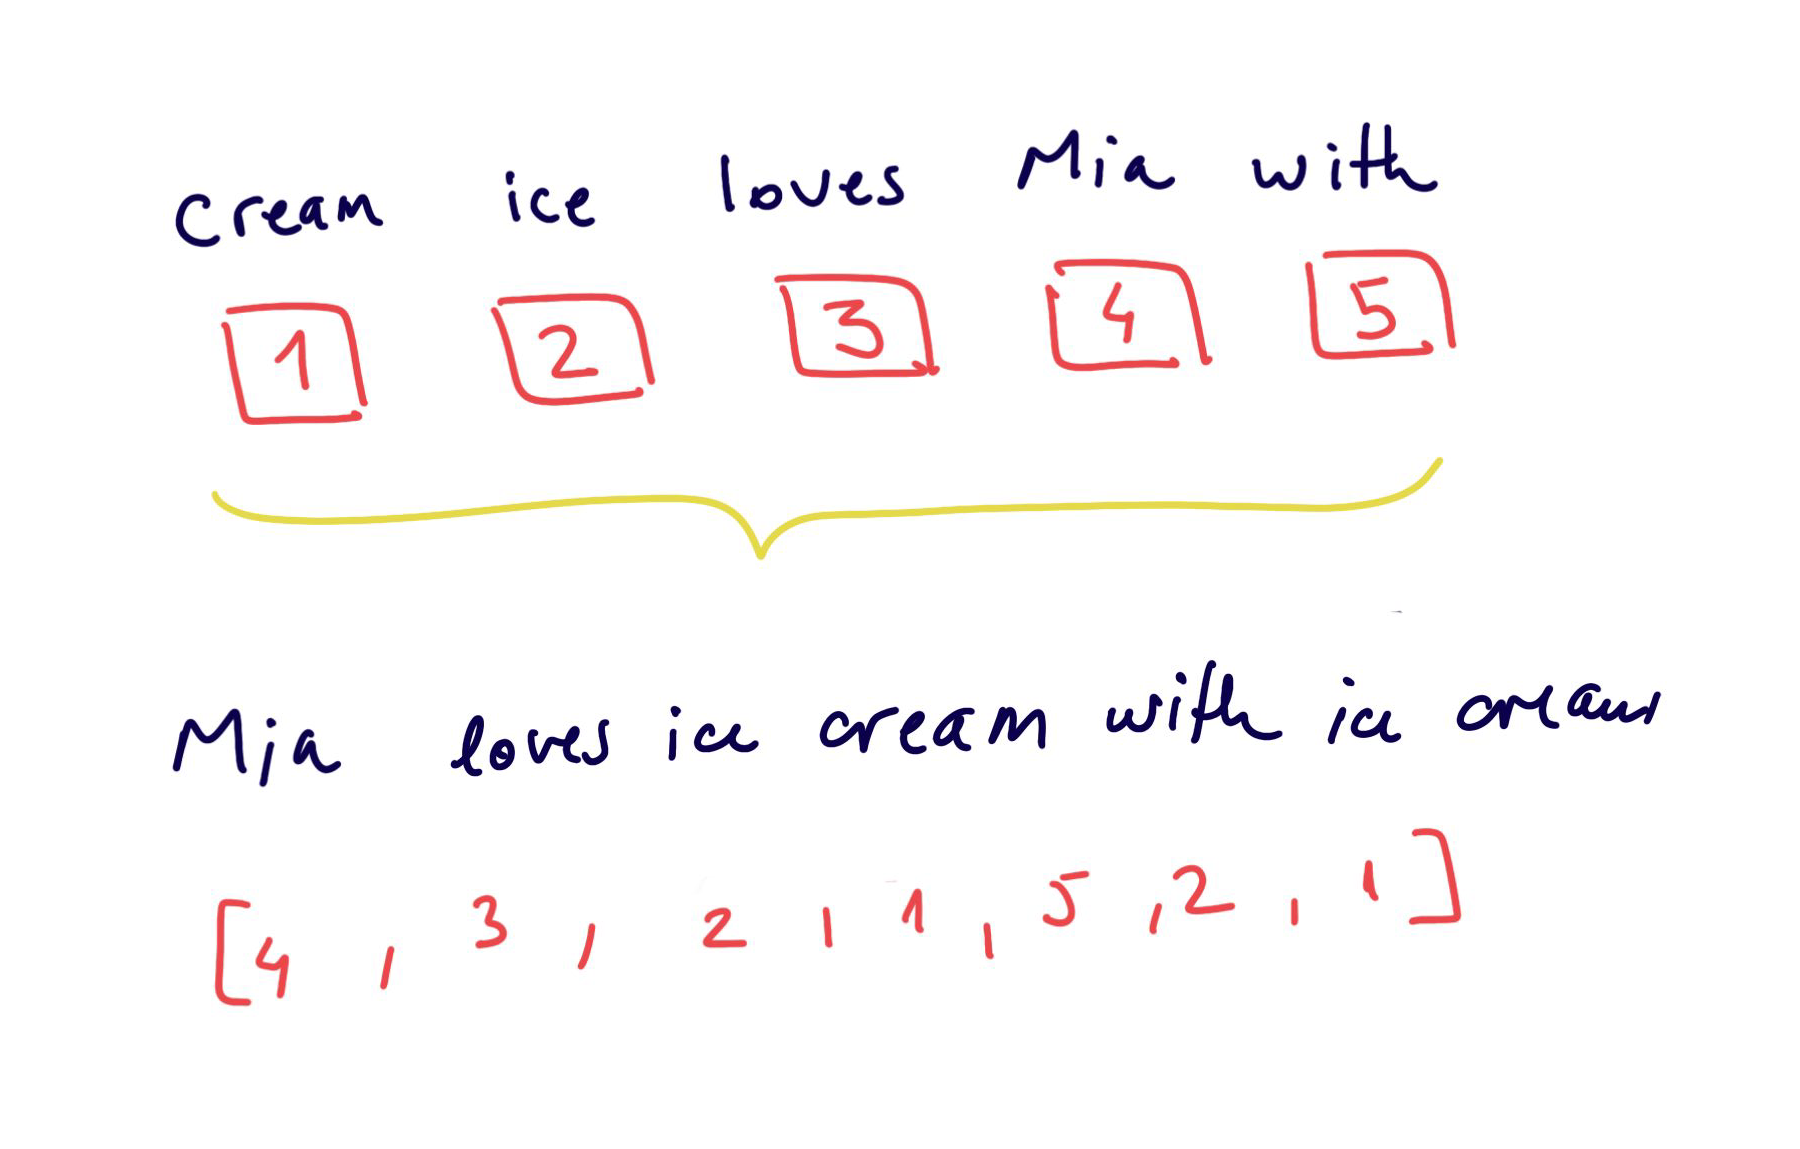 cream ice loves Mia with
1 2 3 4 5
Mia loves ice cream with ice cream
[4, 3, 2, 1, 5, 2, 1]